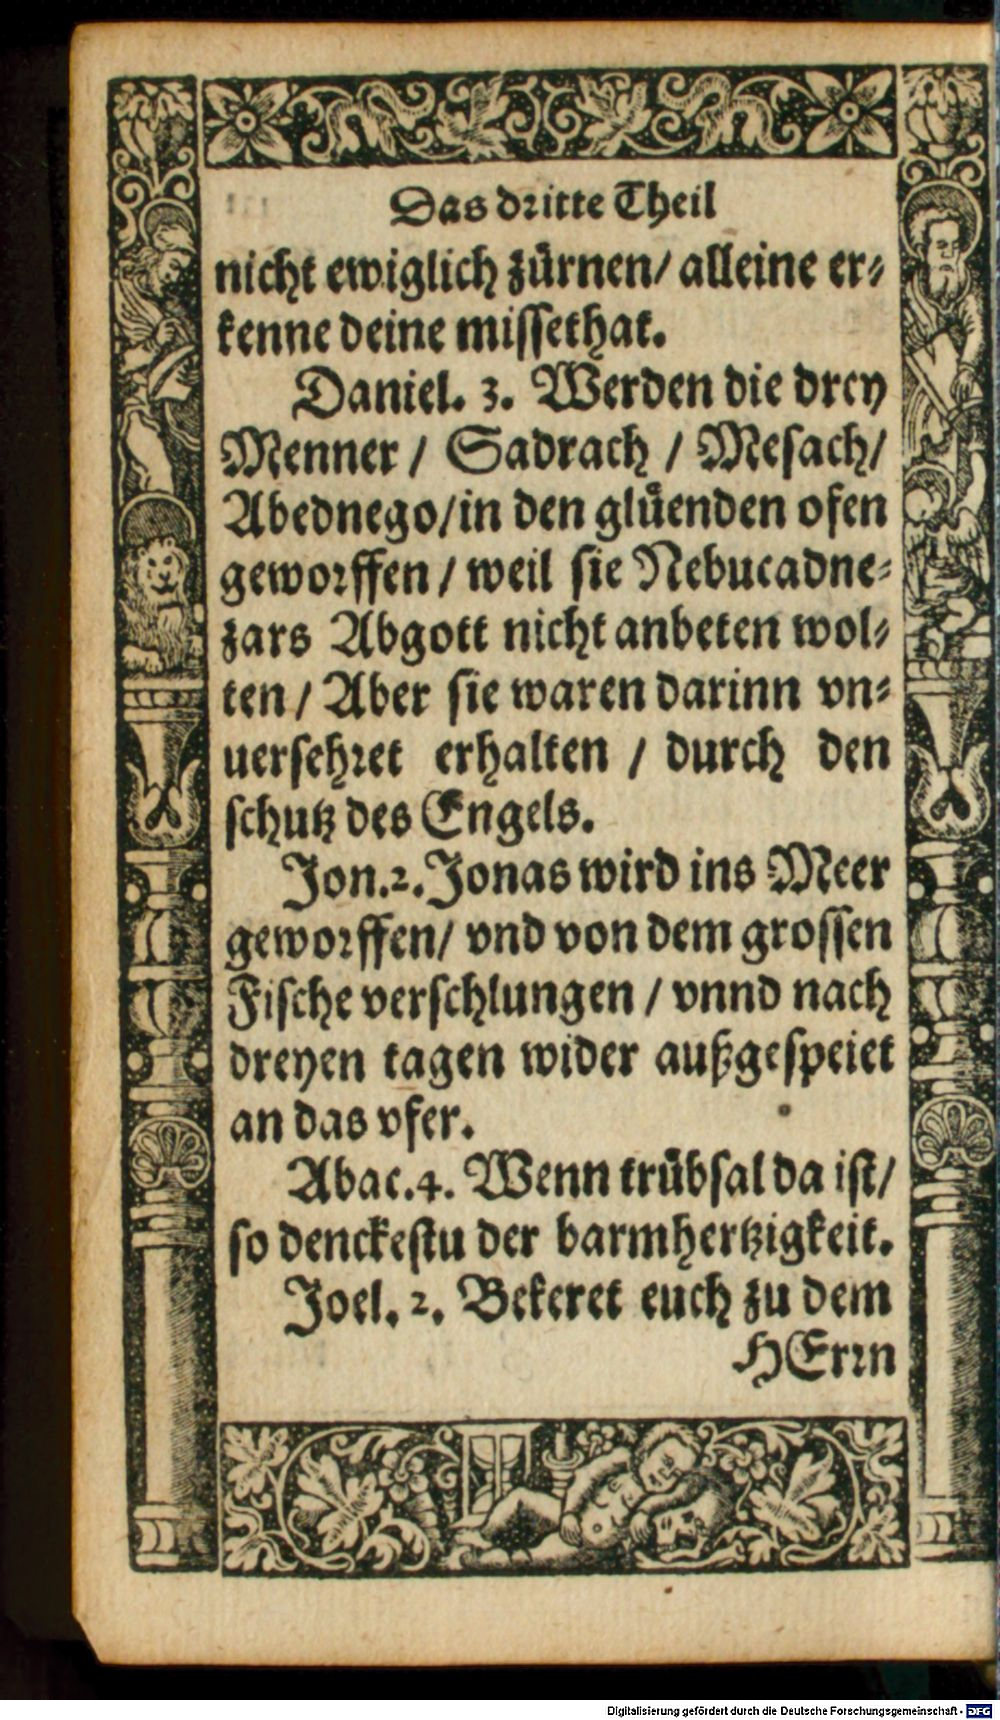 Das dritte Theil
nicht ewiglich zürnen/ alleine er-
kenne deine missethat.
Daniel. 3. Werden die drey
Menner / Sadrach / Mesach/
Abednego/in den glüenden ofen
geworffen / weil sie Nebucadne-
zars Abgott nicht anbeten wol-
ten / Aber sie waren darinn vn-
uersehret erhalten / durch den
schutz des Engels.
Jon.2. Jonas wird ins Meer
geworffen/ vnd von dem grossen
Fische verschlungen / vnnd nach
dreyen tagen wider außgespeiet
an das vfer.
Abac.4. Wenn trübsal da ist/
so denckestu der barmhertzigkeit.
Joel. 2. Bekeret euch zu dem
HErrn
Digitalisierung gefördert durch die Deutsche Forschungsgemeinschaft - DFG